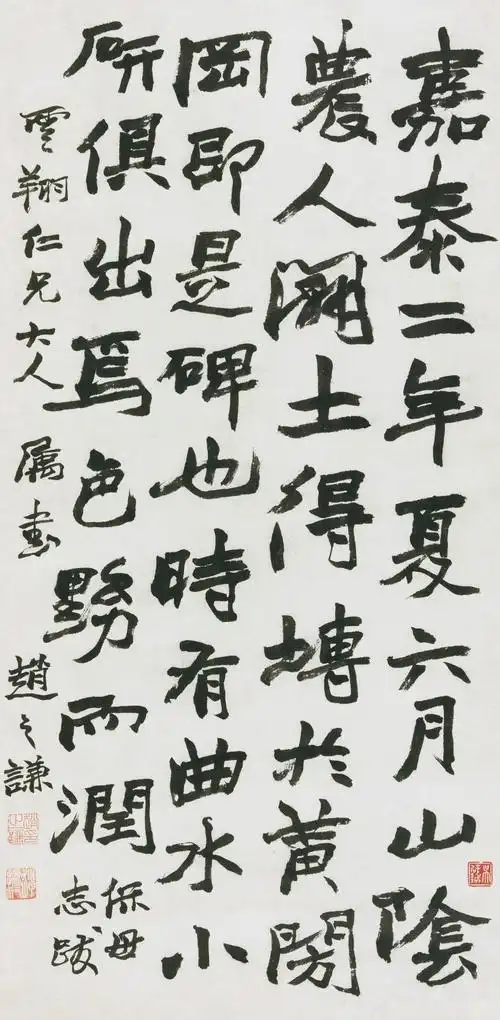 嘉泰二年夏六月山陰
農人闢土得塼於黃閍
岡即是碑也時有曲水小
研俱出焉色黝而潤
保母
志跋
雲翔仁兄大人属書趙之謙